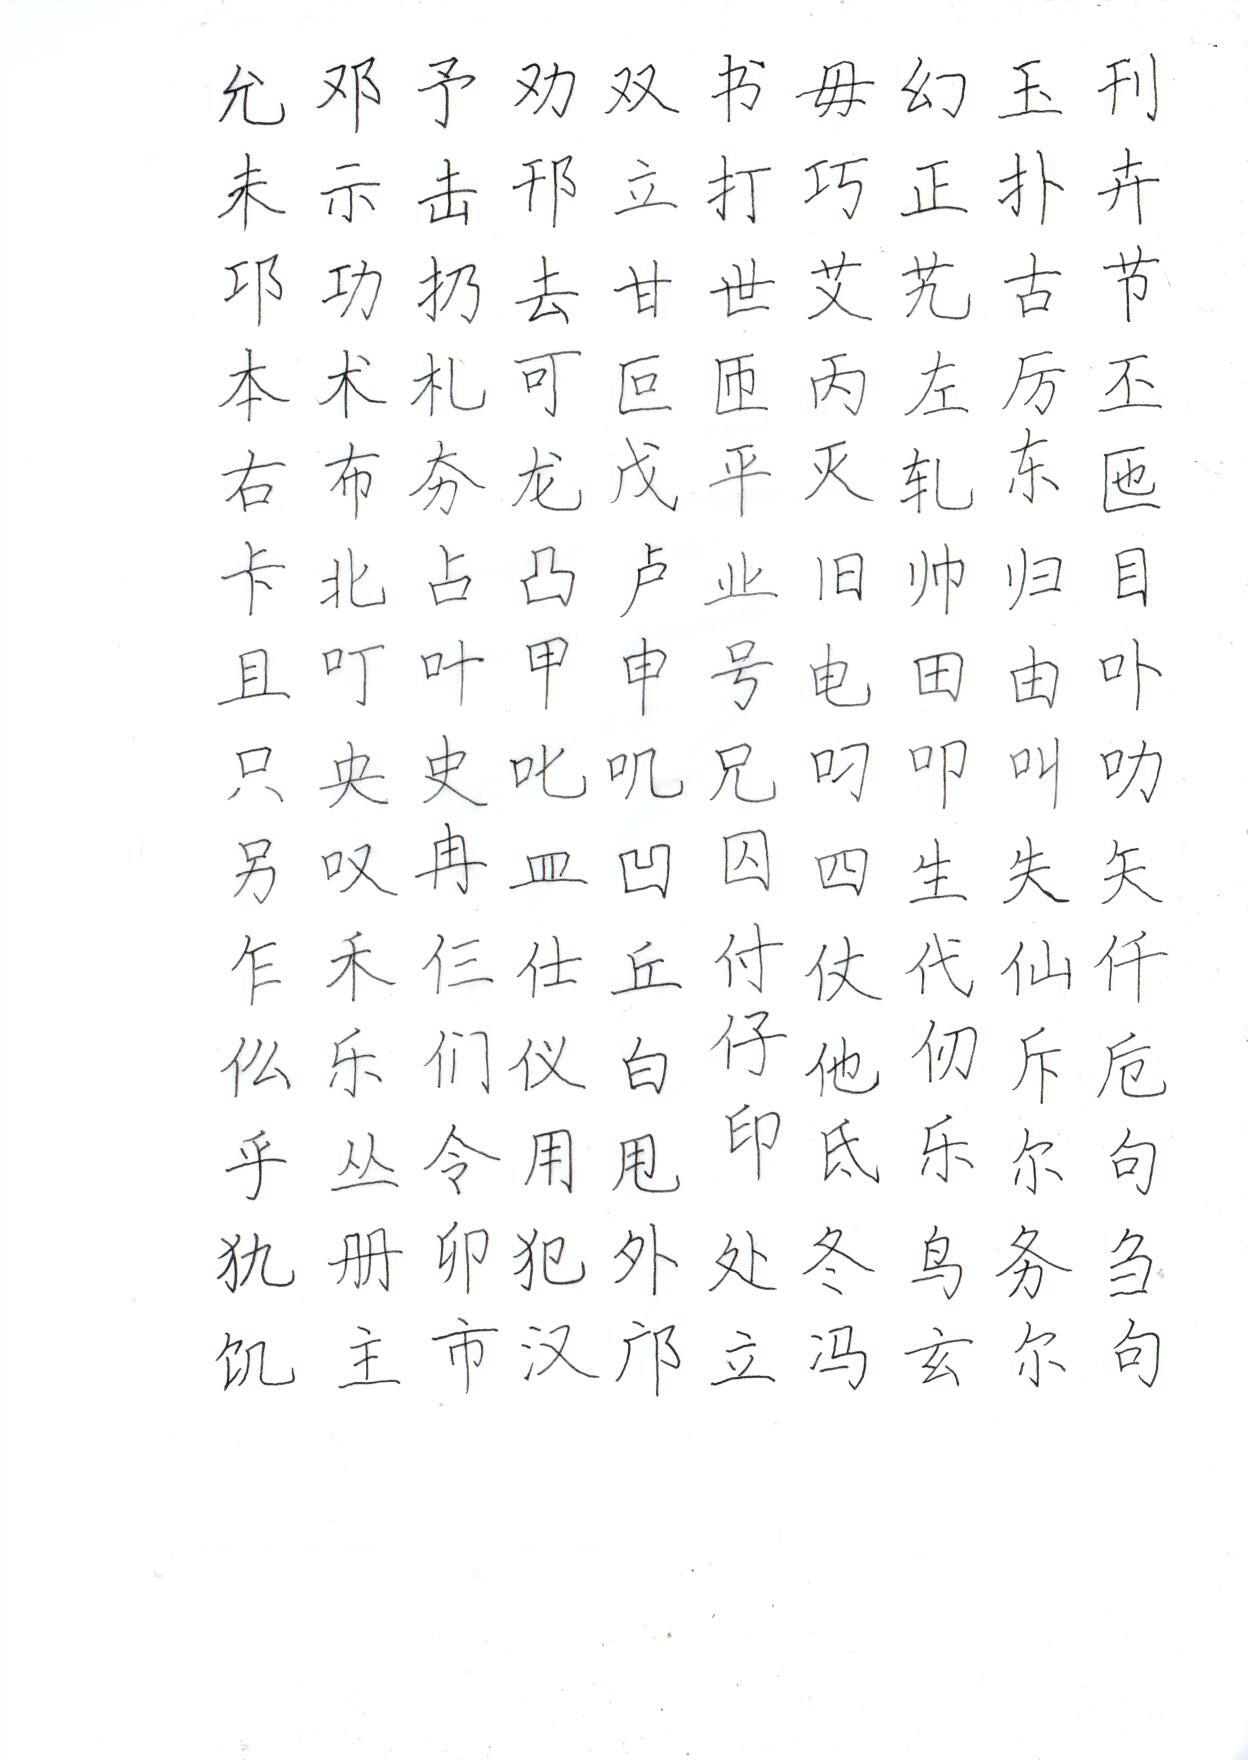 允邓予劝双书毋幻玉刊
未示击邗立打巧正扑卉
邛功扔去甘世艾艽古节
本术札可叵匝丙左厉丕
右布夯龙戊平灭轧东匜
卡北占凸卢业旧帅归目
且叮叶甲申号电田由卟
只央史叱叽兄叼叩叫叻
另叹冉皿凹囚四生失矢
乍禾仨仕丘付仗代仙仟
仫乐们仪白仔他仞斥卮
乎丛令用甩印氐乐尔句
犰册卯犯外处冬鸟务刍
饥主市汉邝立冯玄尔句